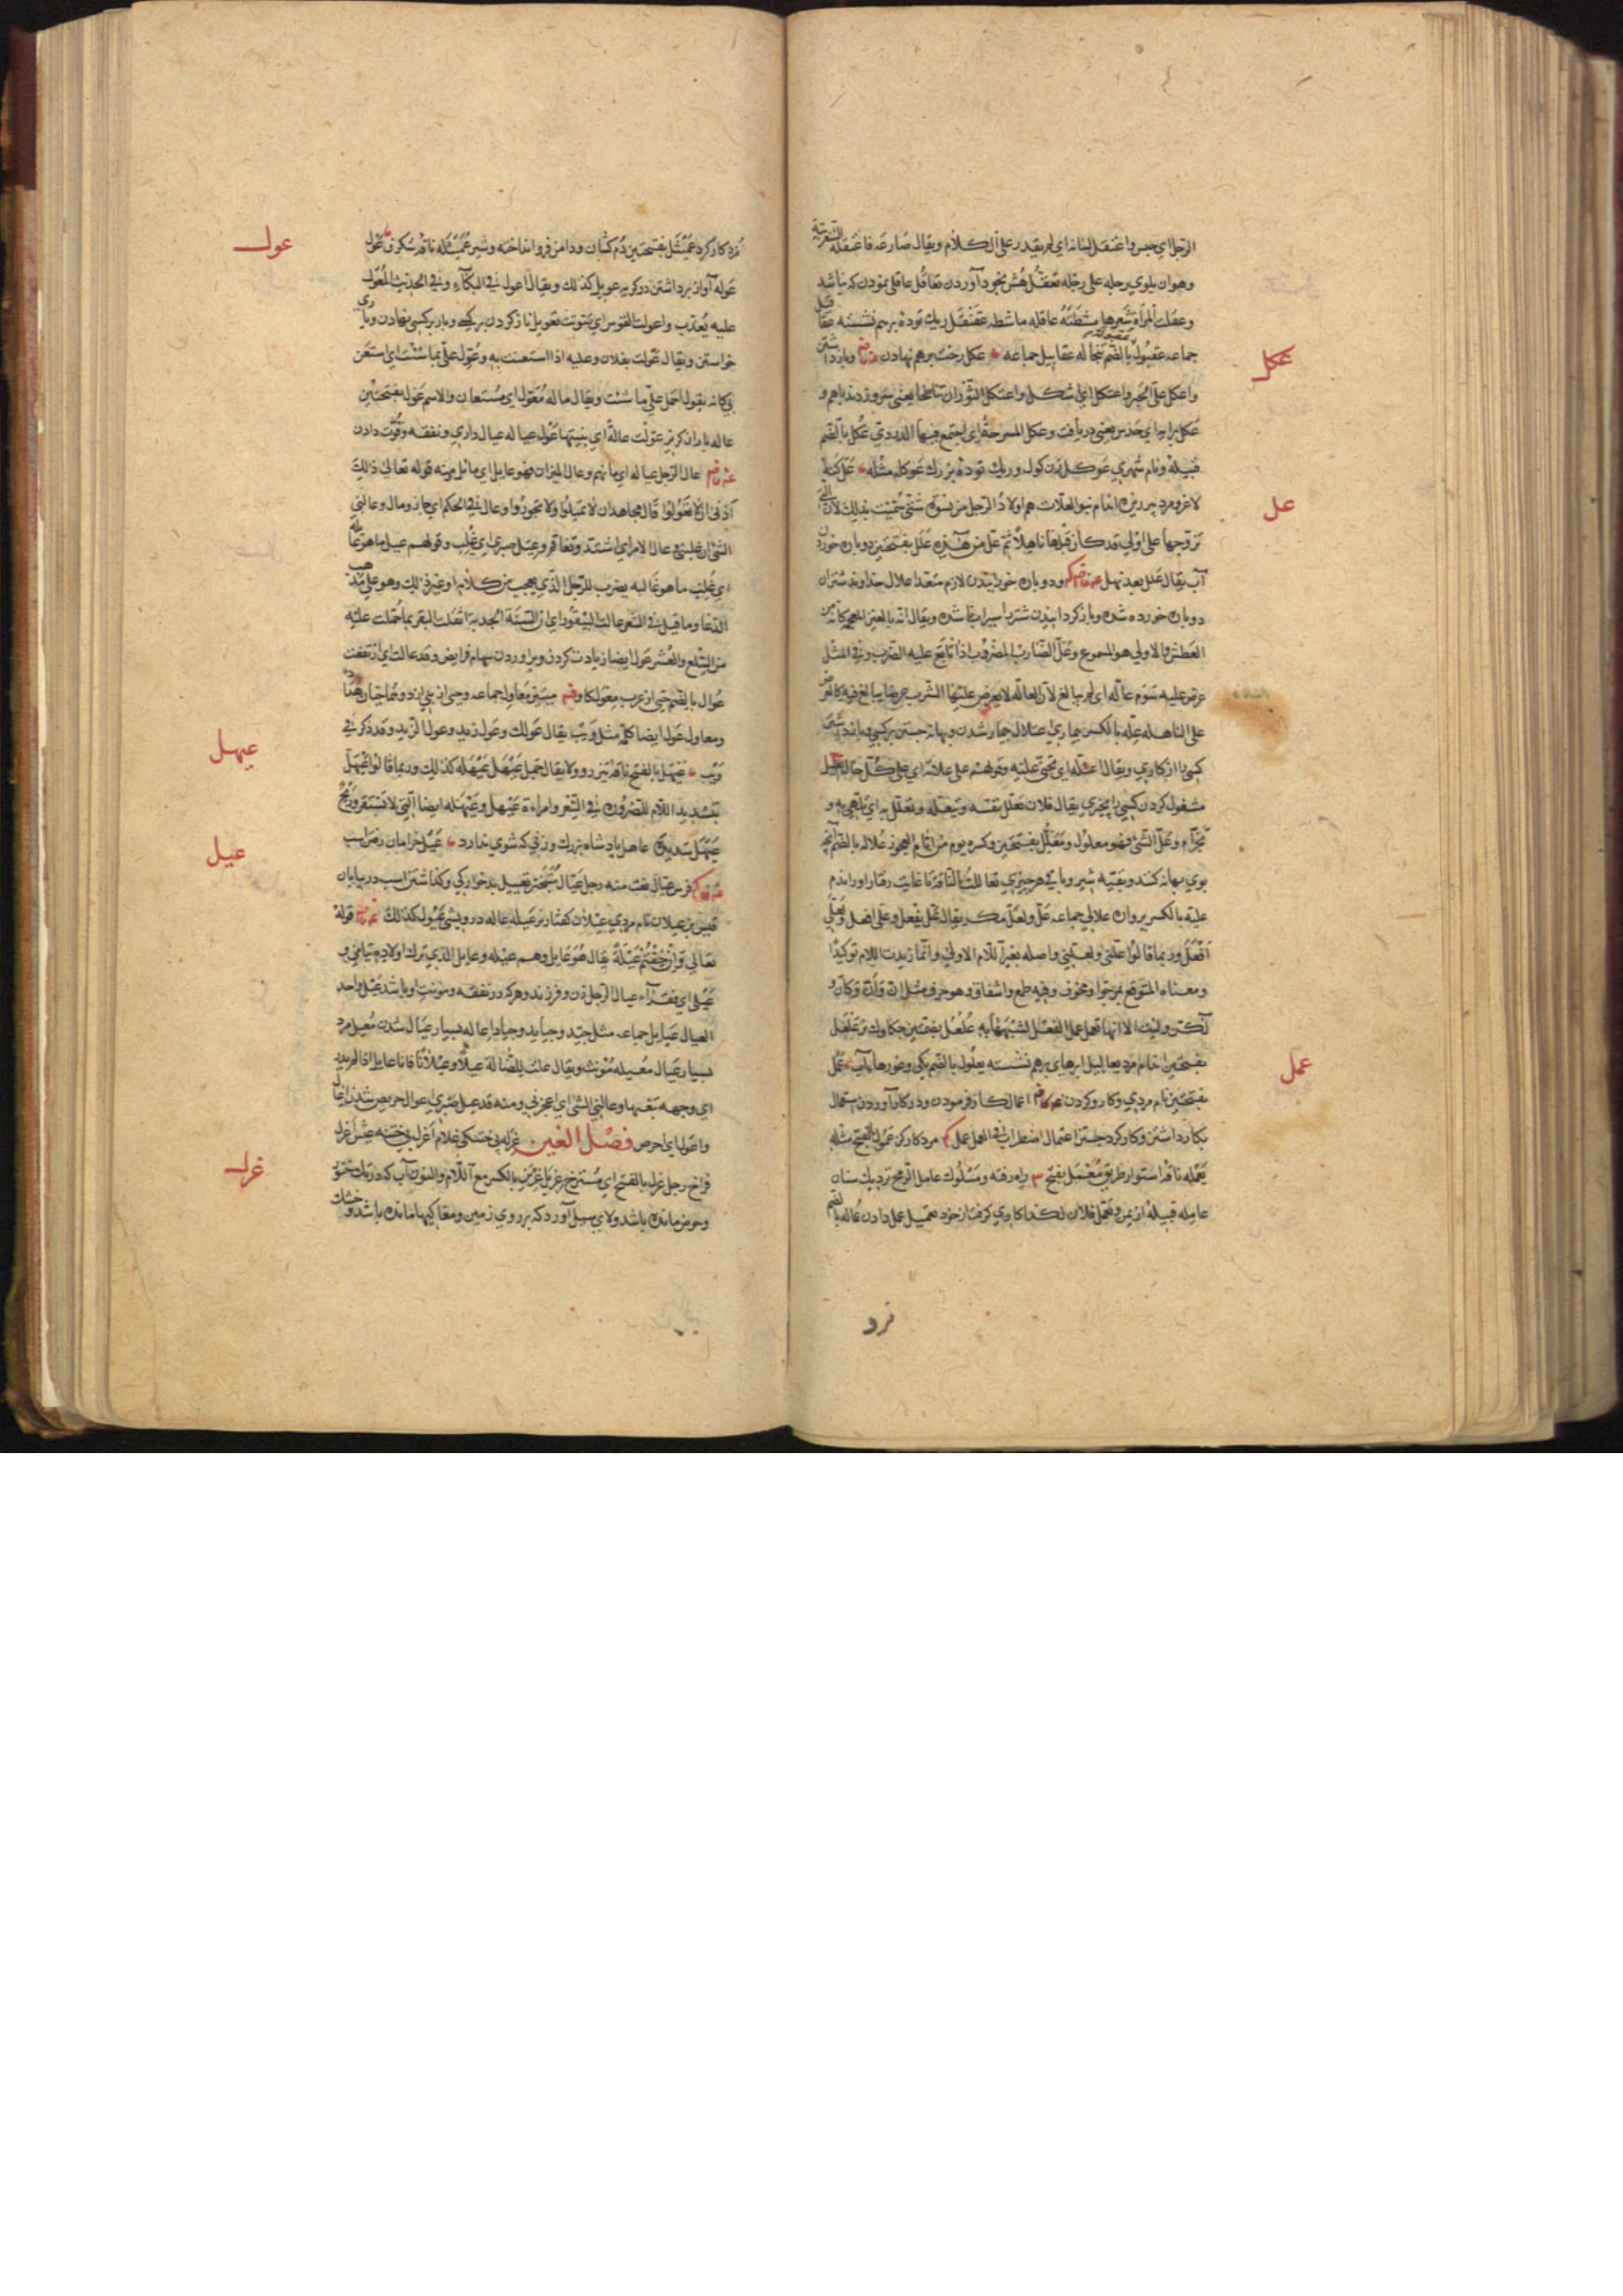 الرجل اي حبس واعتقل لسانه اي لم يقدر على الكلام ويقال صارعه فاعتقله الشغزبية
وهو ان يلوي رجله على رجله تعقل هش بخود آوردن تعاقل عاقلي نمودن كه نباشد
وعقلت المرأة شعرها مشطته عاقله ماشطه عقنقل ريك توده برهم نشسته عقاقل
جماعه عقبول بالضم تبخاله عقابيل جماعه عكل رخت برهم نهادن وبازداشتن
عكل
واعكل على الخبر واعتكل اي اشكل واعتكل الثوران تناطحا يعني سرو زدند باهم و
عكل برايه اي حدس يعني دريافت وعكل المسرجة اي اجتمع فيها الدردي عكل بالضم
قبيلة ونام شهري عوكل زن كول وريك توده بزرك عوكله مثله عل كنه
عل
لاغر ومرد پير ريزه اندام بنو العلات هم اولاد الرجل من نسوة شتى سميت بذلك لان التي
تزوجها على اولى قد كان قبلها ناهل ثم عل من هذه علل بفتحتين دوباره خوردن
آب يقال علل بعد نهل ودوباره خورانيدن لازم متعد اعلال خداوند شتران
دوباره خورده شدن وباز كردانيدن شتر را سيراب ناشده ويقال انه بالغين المعجمة كانه من
العطش والاولى هو المسموع وعل الضارب المضروب اذا تابع عليه الضرب وفي المثل
عرض عليه سوم عالة اي لم يبالغ لان العالة لا يعرض عليها الشرب عرضا يبالغ فيه كالعرض
على الناهلة علة بالكسر بيماري اعتلال بيمار شدن وبهانه جستن بركسي وبازداشتن
كسي را از كاري ويقال اعتله اي تجنى عليه وقولهم على علاته اي على كل حال تعليل
مشغول كردن كسي را بچيزي يقال فلان تعلل نفسه وتعلله وتعلل به اي تلهى به و
تجزأ وعل الشيء فهو معلول ومعلل بفتحتين وكسره يوم من ايام العجوز علاله بالضم آنچه
بوي بهانه كنند وبقيه شير وباقي هر چيزي تعاللت الناقة تا غايت رفتار او راندم
علية بالكسر پرواره علالي جماعه عل ولعل مكر يقال عل يفعل وعلي افعل ولعلي
افعل وربما قالوا علني ولعلني واصله بغير اللام الاولى وانما زيدت اللام توكيدا
ومعناه التوقع لمرجو او مخوف وفيه طمع واشفاق وهو حرف مثل ان وان وكان و
لكن وليت الا انها تعمل عمل الفعل لشبهها به علعل بضمتين چكاوك نر علعل
بفتحتين اندام مرد يعاليل ابرهاي برهم نشسته يعلول بالضم يكي وغورهاي آب عمل
عمل
بفتحتين نام مردي وكار وكردن اعمال كار فرمودن ودر كار آوردن استعمال
بكار داشتن وكار كرد جستن اعتمال اضطراب في العمل عمل مرد كاركن عمول بالفتح مثله
يعمله ناقة استوار طريق معمل بفتح ٣ راه رفته ومسلوك عامل الرمح نزديك سنان
عامله قبيلة از يمن وتعمل فلان لكذا كار وي كرفت از خود تعميل عمل دادن عماله بالضم
مزد
مزد كار كرد عميثل بفتحتين دم كشان ودامن فرو انداخته وشير عميثله ناقة شكرف عول
عول
عوله آواز برداشتن در كريه عويل كذلك ويقال اعول في البكاء وفي الحديث المعول
عليه يعذب واعولت القوس اي صوتت تعويل ناز كردن بركسي وبار بركسي نهادن وياري
خواستن ويقال عولت بفلان وعليه اذا استعنت به وعول علي بما شئت اي استعن
بي كانه يقول احمل علي ما شئت ويقال ما له معول اي مستعان والاسم عول بفتحتين
عاله باران كريز عولت عالة اي بنيتها عول عياله عيال داري ونفقه وقوت دادن
عال الرجل عياله اي مانهم وعال الميزان فهو عايل اي مائل ومنه قوله تعالى ذلك
ادنى ان لا تعولوا قال مجاهد ان لا تميلوا ولا تجوروا وعال في الحكم اي جار ومال وعالني
الشئ اي غلبني عال الامر اي اشتد وتفاقم وعيل صبري اي غلب وقولهم عيل ما هو عائله
اي غلب ما هو غالبه يضرب للرجل الذي يعجب من كلامه او غير ذلك وهو على مذهب
الدعا وما قيل في الشعر عالت البيقورا اي ان السنة الجدبة اثقلت البقر بما حملت عليه
من السلع والعشر عول ايضا زيادت كردن وبرآوردن سهام فرايض وقد عالت اي ارتفعت
عوال بالضم حي از عرب معول كاوقم ميتين معاول جماعه وحي از بني ازد وهما حيان هنا
ومعاول عول ايضا كلمة مثل ويب يقال عولك وعول زيد وعول لزيد وقد ذكر في
ويب عيهل بالفتح ناقة تيزرو ولا يقال جمل عيهل عيهله كذلك وربما قالوا عيهل
عيهل
بتشديد اللام للضرورة في الشعر وامراءة عيهل وعيهله ايضا التي لا تستقر وريح
عيهل شديدة عاهل پادشاه بزرك وزني كه شوي ندارد عيل خرامان رفتن اسب
عيل
فرس عيال نعت منه رجل عيال متبختر تعييل بد خواركي وكذاشتن اسب در بيابان
قيس بن عيلان نام مردي عيلان كفتار نر عيله عاله درويشي عيول كذلك قوله
تعالى وان خفتم عيلة يقال هو عايل وهم عيله وعايل الذي ترك اولاده يتامى بر
عيلى اي فقراء عيال الرجل زن وفرزند وهركه در نفقه ومونت او باشد عيل واحد
العيال عيايل جماعه مثل جيد وجياد وجيايد اعاله بسيار عيال شدن معيل مرد
بسيار عيال معيله مؤنث ويقال علت للضالة عيلا وعيلانا فانا عايل اذا لم يدر
اي وجهة تبغيها وعالني الشئ اي اعجزني ومنه قد عيل صبري اعوال حريص شدن اعال
واعول اي احرص فصل الغين غرله بي ختنكي غلام اغرل بي ختنه عيش اغرل
غرل
فراخ رجل غرل بالفتح اي مسترخ غريل غرين بالكسر مع اللام والنون آب كه در تك حوض
وحوض مانده باشد ولاي سيل آورد كه بر روي زمين ومغاكيها مانده باشد وخشك